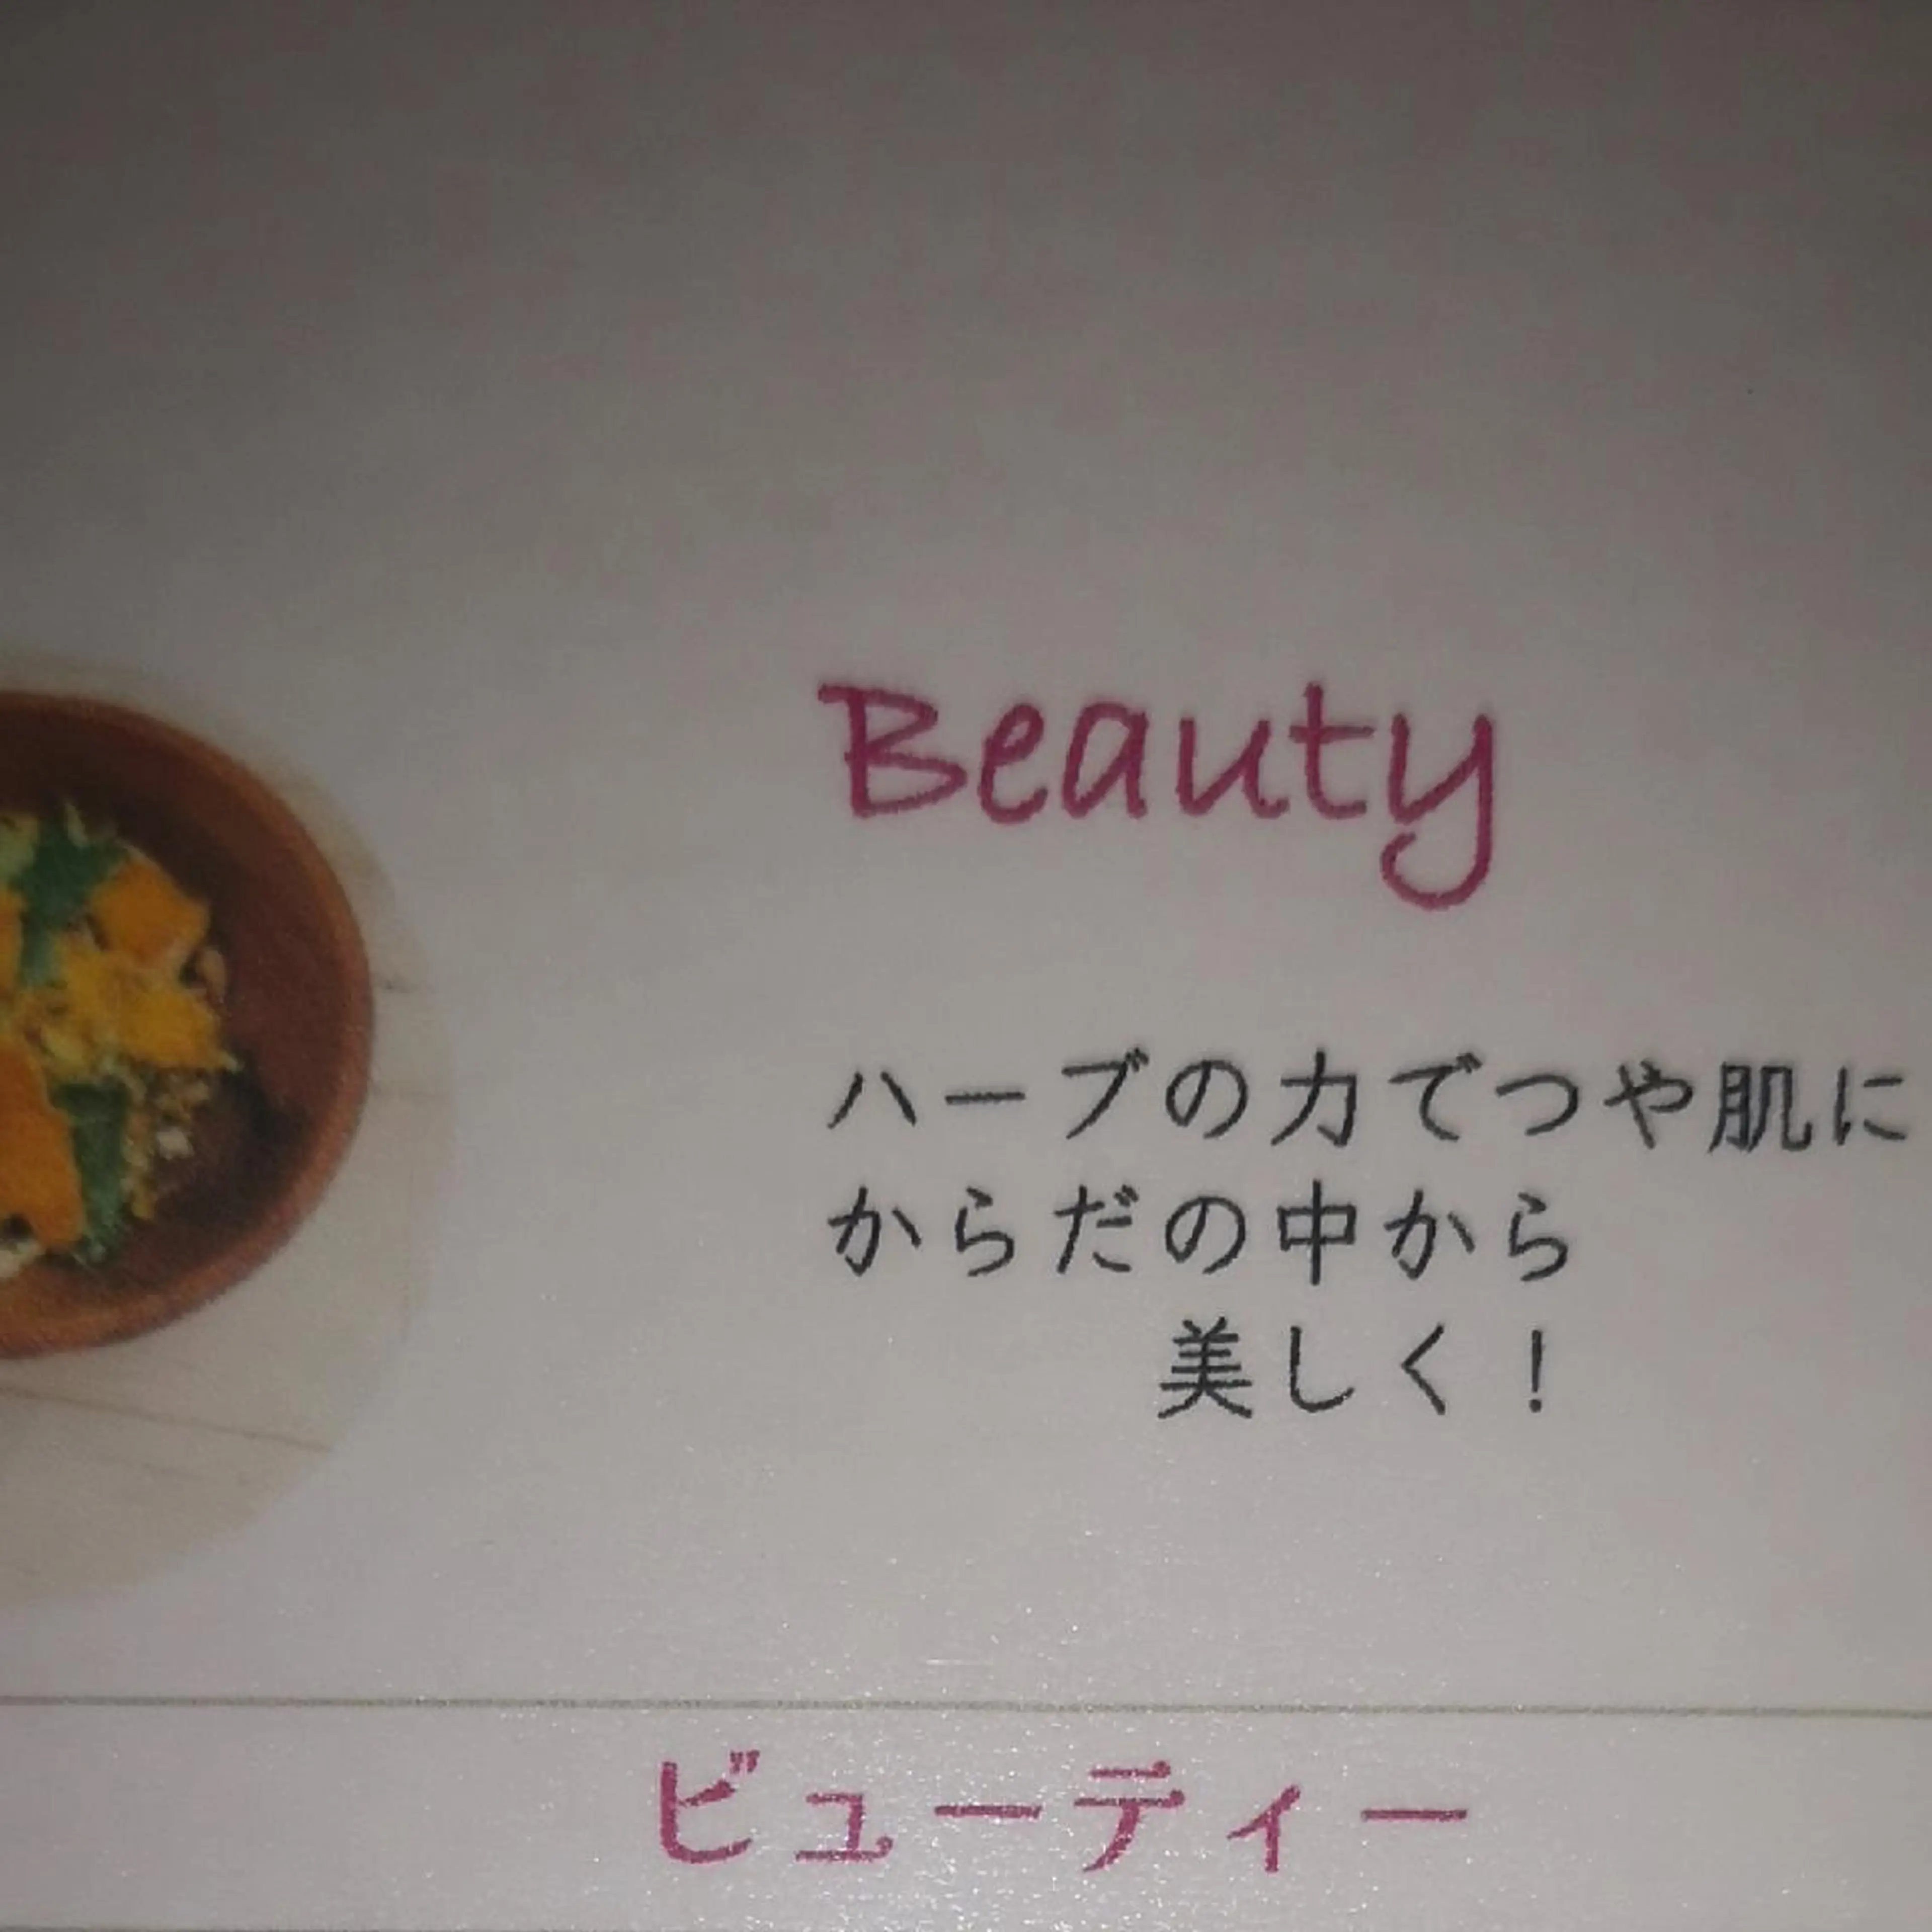 Beauty
ハーブの力でつや肌に
からだの中から
美しく！
ビューティー